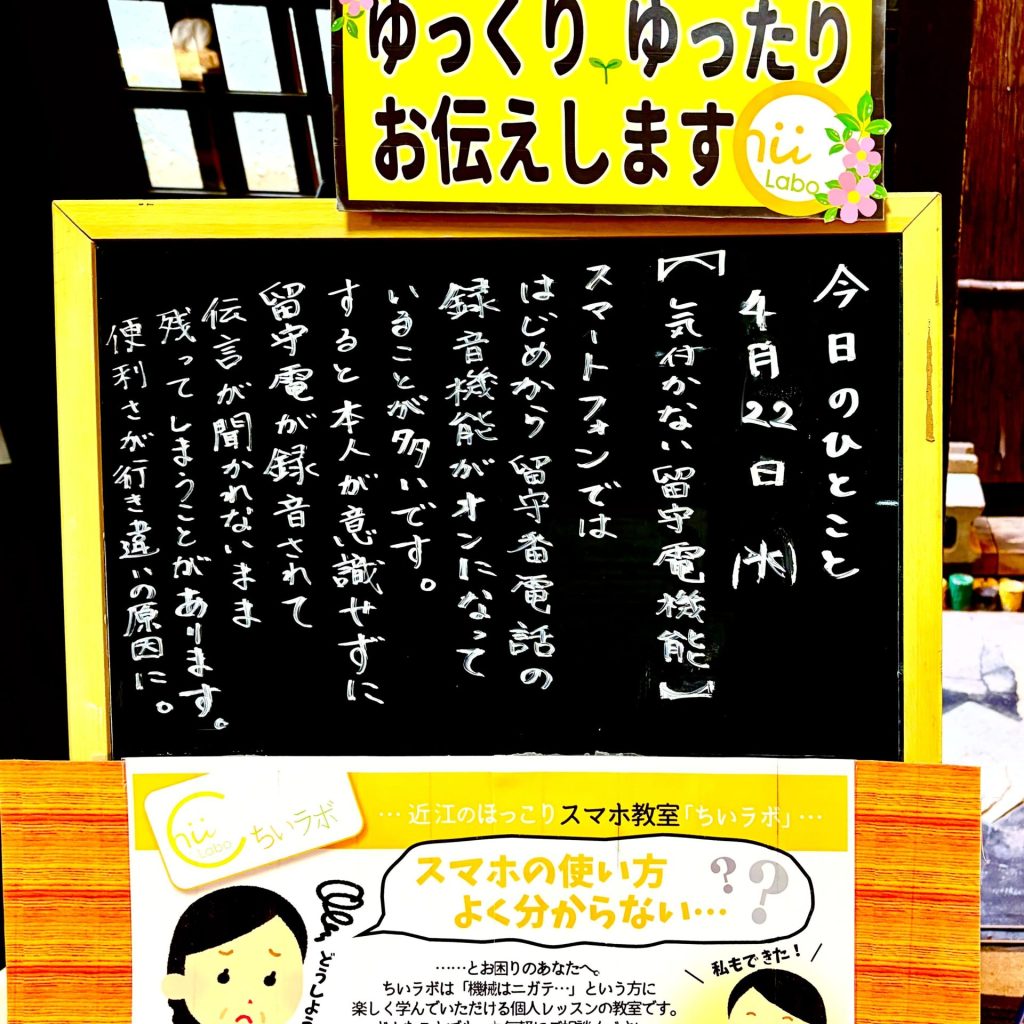 ゆっくり ゆったり
お伝えします
hii
Labo
今日のひとこと
4月22日(水)
【気付かない留守電機能】
スマートフォンでは
はじめから留守番電話の
録音機能がオンになって
いることが多いです。
すると本人が意識せずに
留守電が録音されて
伝言が聞かれないまま
残ってしまうことがあります。
便利さが行き違いの原因に。
Chii
Labo
ちいラボ
…近江のほっこりスマホ教室「ちいラボ」…
スマホの使い方
よく分からない…
??
……とお困りのあなたへ。
ちいラボは「機械はニガテ…」という方に
楽しく学んでいただける個人レッスンの教室です。
私もできた！